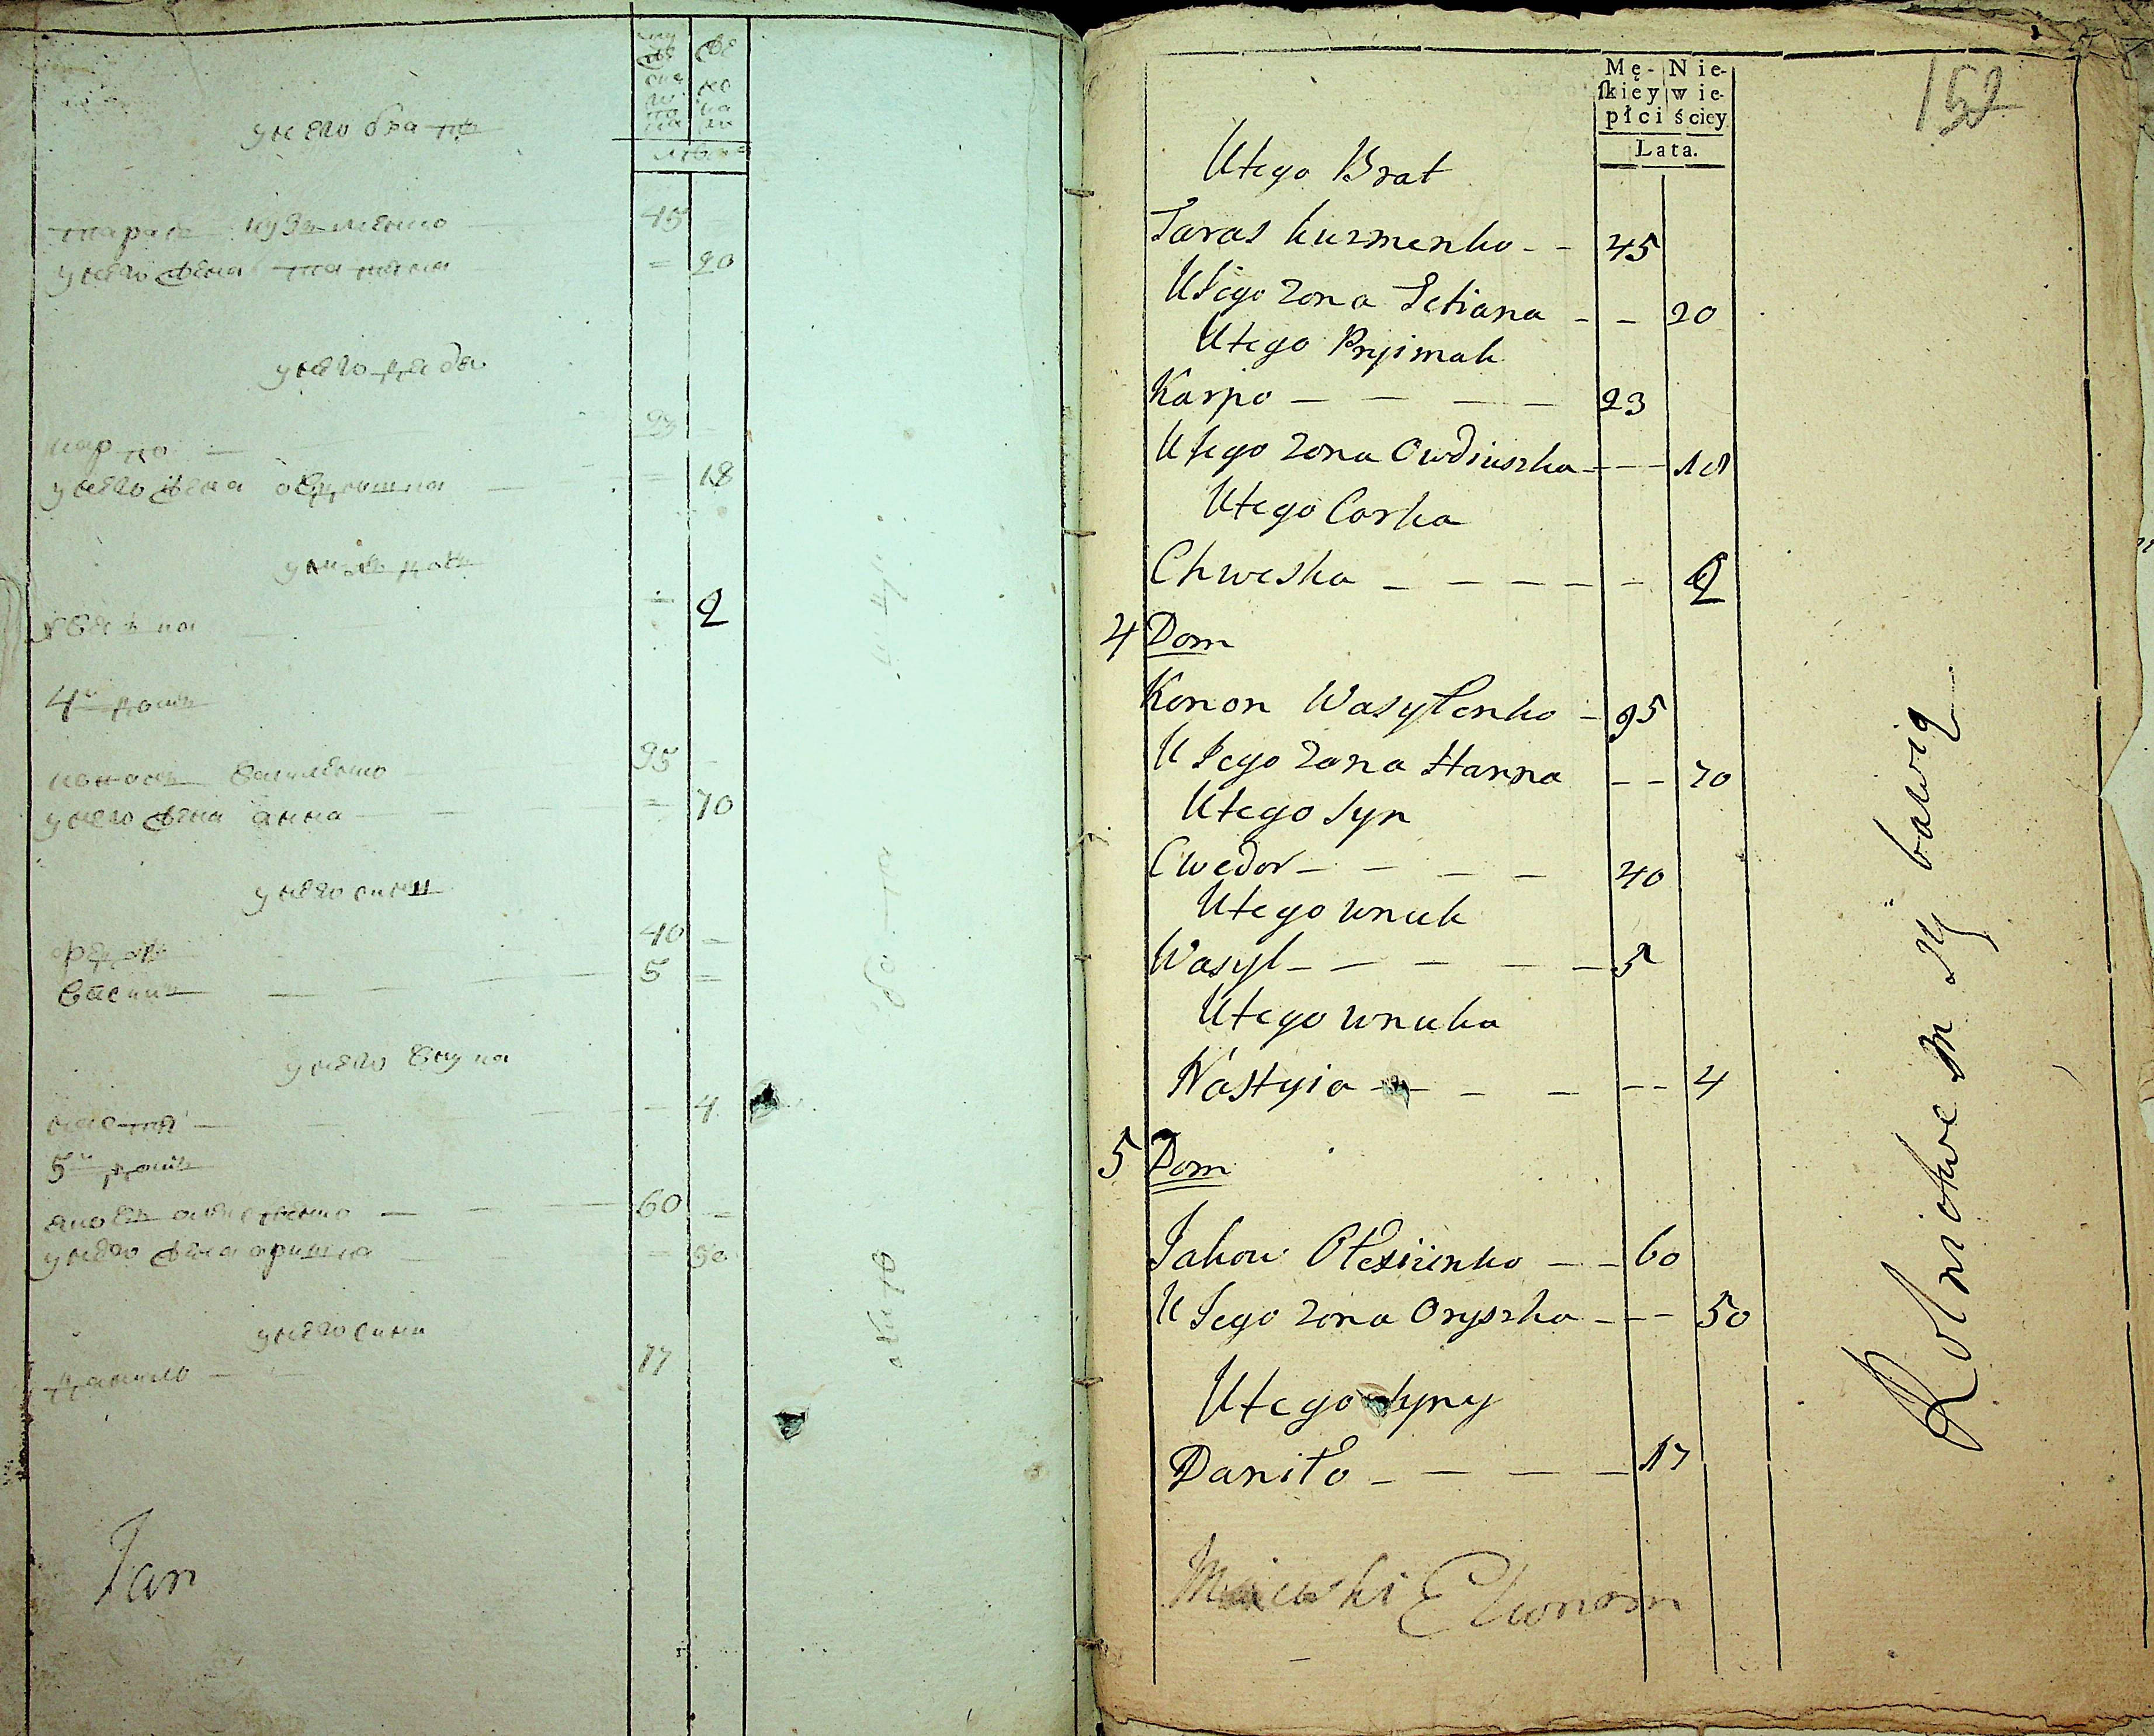 у него братъ
тарасъ кузьменко 45
у него жена татяна = 20
у него
карпо 23
у него жена овдюшка = 18
хвеська = 2
4й домъ
кононъ василенко 95
у него жена анна = 70
у него сини
федоръ 40 =
василь 5 =
у него внука
настя 4
5й домъ
60
у него жена оришка = 50
у него сини
данило 17
Jan
Mę- Nie-
ſkiey wie-
płci ściey
Lata.
152
Utego Brat
Taras Kuzmenko 45
U Jego Zona Tetiana 20
Utego Pryimak
Karpo 23
U Jego Zona Owdiuszka 18
Utego Corka
Chweska 2
4 Dom
Konon Wasylenko 95
U Jego Zona Hanna 70
Utego Syn
Chwedor 40
Utego wnuk
Wasyl 5
Utego wnuka
Nastyia 4
5 Dom
Jakow Olexiienko 60
U Jego Zona Oryszka 50
Utego Syny
Daniło 17
Maiewski Ekonom
Rolnictwem się bawią